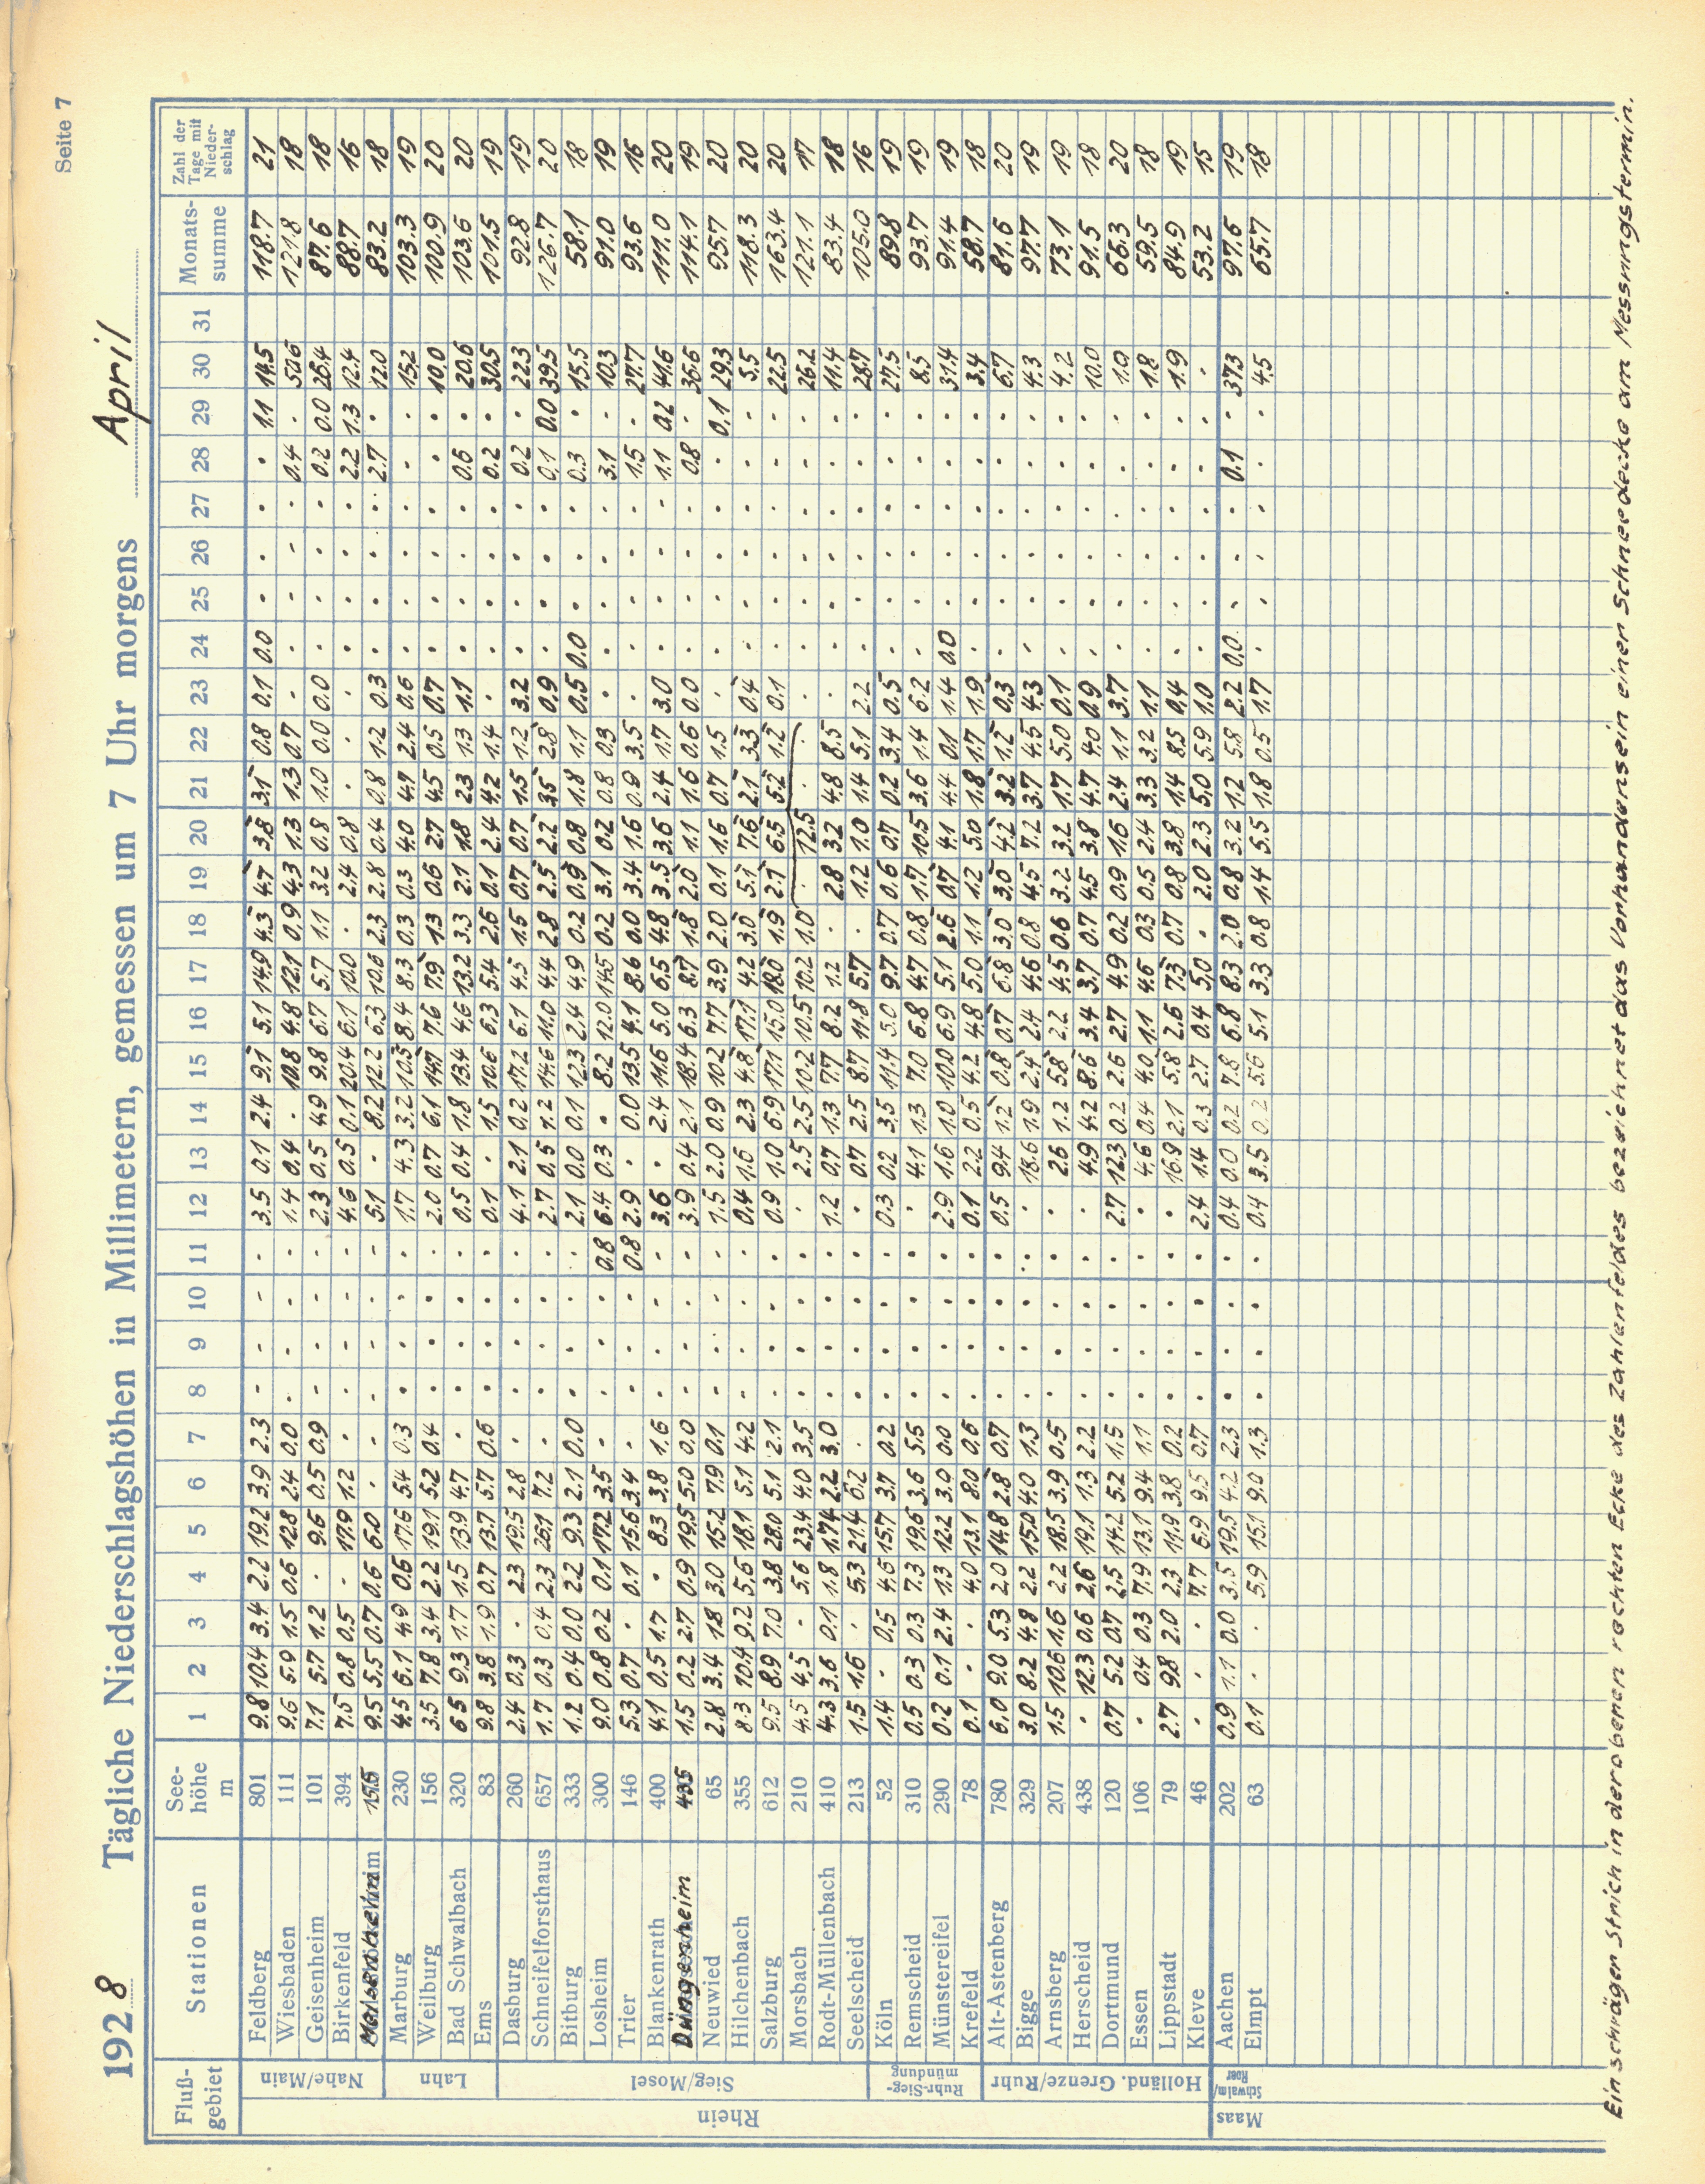 Seite 7
1928 Tägliche Niederschlagshöhen in Millimetern, gemessen um 7 Uhr morgens April
Fluß-gebiet Stationen See-höhe m 1 2 3 4 5 6 7 8 9 10 11 12 13 14 15 16 17 18 19 20 21 22 23 24 25 26 27 28 29 30 31 Monats-summe Zahl der Tage mit Nieder-schlag
Rhein
Nahe/Main
Feldberg 801 9.8 10.4 3.4 2.2 19.2 3.9 2.3 - - - - 3.5 0.1 2.4 9.1 5.1 14.9 4.3 4.7 3.8 3.1 0.8 0.1 0.0 . . . . 1.1 14.5 118.7 21
Wiesbaden 111 9.6 5.9 1.5 0.6 12.8 2.4 0.0 . - - - 1.4 0.4 . 10.8 4.8 12.1 0.9 4.3 1.3 1.3 0.7 . . . . . 0.4 . 50.6 121.8 18
Geisenheim 101 7.1 5.7 1.2 . 9.6 0.5 0.9 - - - - 2.3 0.5 4.9 9.8 6.7 5.7 1.1 3.2 0.8 1.0 0.0 0.0 . . . . 0.2 0.0 26.4 87.6 18
Birkenfeld 394 7.5 0.8 0.5 - 17.9 1.2 . - - - - 4.6 0.5 0.1 20.4 6.1 10.0 . 2.4 0.8 . . . . . . . 2.2 1.3 12.4 88.7 16
155 9.5 5.5 0.7 0.6 6.0 . - - - - - 5.1 . 8.2 12.2 6.3 10.6 2.3 2.8 0.4 0.8 1.2 0.3 . . . . 2.7 . 12.0 83.2 18
Lahn
Marburg 230 4.5 6.1 4.9 0.6 17.6 5.4 0.3 . . . . 1.7 4.3 3.2 10.5 8.4 8.3 0.3 0.3 4.0 4.9 2.4 0.6 . . . . . . 15.2 103.3 19
Weilburg 156 3.5 7.8 3.4 2.2 19.1 5.2 0.4 . . . . 2.0 0.7 6.1 14.7 7.6 7.9 1.3 0.6 2.7 4.5 0.5 0.7 . . . . . . 10.0 100.9 20
Bad Schwalbach 320 6.5 9.3 1.7 1.5 13.9 4.7 . . . . . 0.5 0.4 1.8 13.4 4.6 13.2 3.3 2.1 1.8 2.3 1.3 1.1 . . . . 0.6 . 20.6 103.6 20
Ems 83 9.8 3.8 1.9 0.7 13.7 5.7 0.6 . . . . 0.1 . 1.5 10.6 6.3 5.4 2.6 0.1 2.4 4.2 1.4 . . . . . 0.2 . 30.5 101.5 19
Sieg/Mosel
Dasburg 260 2.4 0.3 . 2.3 19.5 2.8 . . . . . 4.1 2.1 0.2 17.2 6.1 4.5 1.5 0.7 0.7 1.5 1.2 3.2 . . . . 0.2 . 22.3 92.8 19
Schneifelforsthaus 657 1.7 0.3 0.4 2.3 26.1 7.2 . . . . . 2.7 0.5 1.2 14.6 11.0 4.4 2.8 2.5 2.2 3.5 2.8 0.9 . . . . 0.1 0.0 39.5 126.7 20
Bitburg 333 1.2 0.4 0.0 2.2 9.3 2.1 0.0 . . . . 2.1 0.0 0.1 12.3 2.4 4.9 0.2 0.9 0.8 1.8 1.1 0.5 0.0 . . . 0.3 . 15.5 58.1 18
Losheim 300 9.0 0.8 0.2 0.1 17.2 3.5 . . . . 0.8 6.4 0.3 . 8.2 12.0 14.5 0.2 3.1 0.2 0.8 0.3 . . . . . 3.1 . 10.3 91.0 19
Trier 146 5.3 0.7 . 0.1 15.6 3.4 . . . . 0.8 2.9 . 0.0 13.5 4.1 8.6 0.0 3.4 1.6 0.9 3.5 . . . . . 1.5 . 27.7 93.6 16
Blankenrath 400 4.1 0.5 1.7 . 8.3 3.8 1.6 . . . . 3.6 . 2.4 11.6 5.0 6.5 4.8 3.5 3.6 2.4 1.7 3.0 . . . . 1.1 0.2 41.6 111.0 20
Düngenheim 435 1.5 0.2 2.7 0.9 19.5 5.0 0.0 . . . . 3.9 0.4 2.1 18.4 6.3 8.7 1.8 2.0 1.1 1.6 0.6 0.0 . . . . 0.8 . 36.6 114.1 19
Neuwied 65 2.8 3.4 1.8 3.0 15.2 7.9 0.1 . . . . 1.5 2.0 0.9 10.2 7.7 3.9 2.0 0.1 1.6 0.7 1.5 . . . . . . 0.1 29.3 95.7 20
Hilchenbach 355 8.3 10.4 9.2 5.6 18.1 5.1 4.2 . . . . 0.4 1.6 2.3 4.8 17.1 4.2 3.0 5.1 7.6 2.1 3.3 0.4 . . . . . . 5.5 118.3 20
Salzburg 612 9.5 8.9 7.0 3.8 28.0 5.1 2.1 . . . . 0.9 1.0 6.9 17.1 15.0 18.0 1.9 2.1 6.5 5.2 1.2 0.1 . . . . . . 22.5 163.4 20
Morsbach 210 4.5 4.5 . 5.6 23.4 4.0 3.5 . . . . . 2.5 2.5 10.2 10.5 10.2 1.0 . 12.5 . . . . . . . . . 26.2 121.1 17
Rodt-Müllenbach 410 4.3 3.6 0.1 1.8 17.4 2.2 3.0 . . . . 1.2 0.7 1.3 7.7 8.2 1.2 . 2.8 3.2 4.8 8.5 . . . . . . . 11.4 83.4 18
Seelscheid 213 1.5 1.6 . 5.3 21.4 6.2 . . . . . . 0.7 2.5 8.7 11.8 5.7 . 1.2 1.0 1.4 5.1 2.2 . . . . . . 28.7 105.0 16
Ruhr-Sieg-mündung
Köln 52 1.4 . 0.5 4.6 15.7 3.7 0.2 . . . . 0.3 0.2 3.5 11.4 5.0 9.7 0.7 0.6 0.7 0.2 3.4 0.5 . . . . . . 27.5 89.8 19
Remscheid 310 0.5 0.3 0.3 7.3 19.6 3.6 5.5 . . . . . 4.1 1.3 7.0 6.8 4.7 0.8 1.7 10.5 3.6 1.4 6.2 . . . . . . 8.5 93.7 19
Münstereifel 290 0.2 0.1 2.4 1.3 12.2 3.0 0.0 . . . . 2.9 1.6 1.0 10.0 6.9 5.1 2.6 0.7 4.1 4.4 0.1 1.4 0.0 . . . . . 31.4 91.4 19
Krefeld 78 0.1 . . 4.0 13.1 8.0 0.6 . . . . 0.1 2.2 0.5 4.2 4.8 5.0 1.1 1.2 5.0 1.8 1.7 1.9 . . . . . . 3.4 58.7 18
Holländ. Grenze/Ruhr
Alt-Astenberg 780 6.0 9.0 5.3 2.0 14.8 2.8 0.7 . . . . 0.5 9.4 1.2 0.8 0.7 6.8 3.0 3.0 4.2 3.2 1.2 0.3 . . . . . . 6.7 81.6 20
Bigge 329 3.0 8.2 4.8 2.2 15.0 4.0 1.3 . . . . . 18.6 1.9 2.4 2.4 4.6 0.8 4.5 7.2 3.7 4.5 4.3 . . . . . . 4.3 97.7 19
Arnsberg 207 1.5 10.6 1.6 2.2 18.5 3.9 0.5 . . . . . 2.6 1.2 5.8 2.2 4.5 0.6 3.2 3.2 1.7 5.0 0.1 . . . . . . 4.2 73.1 19
Herscheid 438 . 12.3 0.6 2.6 19.1 1.3 2.2 . . . . . 4.9 4.2 8.6 3.4 3.7 0.7 4.5 3.8 4.7 4.0 0.9 . . . . . . 10.0 91.5 18
Dortmund 120 0.7 5.2 0.7 2.5 14.2 5.2 1.5 . . . . 2.7 12.3 0.2 2.6 2.7 4.9 0.2 0.9 1.6 2.4 1.1 3.7 . . . . . . 1.0 66.3 20
Essen 106 . 0.4 0.3 7.9 13.1 9.4 1.1 . . . . . 4.6 0.4 4.0 1.1 4.6 0.3 0.5 2.4 3.3 3.2 1.1 . . . . . . 1.8 59.5 18
Lippstadt 79 2.7 9.8 2.0 2.3 11.9 3.8 0.2 . . . . . 16.9 2.1 5.8 2.6 7.3 0.7 0.8 3.8 1.4 8.5 0.4 . . . . . . 1.9 84.9 19
Kleve 46 . . . 7.7 6.9 9.5 0.7 . . . . 2.4 1.4 0.3 2.7 0.4 5.0 . 2.0 2.3 5.0 5.9 1.0 . . . . . . . 53.2 15
Maas
Schwalm/Roer
Aachen 202 0.9 1.1 0.0 3.5 19.5 4.2 2.3 . . . . 0.4 0.0 0.2 7.8 6.8 8.3 2.0 0.8 3.2 1.2 5.8 2.2 0.0 . . . 0.1 . 37.3 97.6 19
Elmpt 63 0.1 . . 5.9 15.1 9.0 1.3 . . . . 0.4 3.5 0.2 5.6 5.1 3.3 0.8 1.4 5.5 1.8 0.5 1.7 . . . . . . 4.5 65.7 18
Ein schräger Strich in der oberen rechten Ecke des Zahlenfeldes bezeichnet das Vorhandensein einer Schneedecke am Messungstermin.